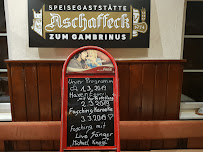 SPEISEGASTSTÄTTE
Aschaffeck
ZUM GAMBRINUS
Unser Programm
1.3.2019
2.3.2019
Fasching
3.3.2019
Fasching mit
Live Sänger
Michael